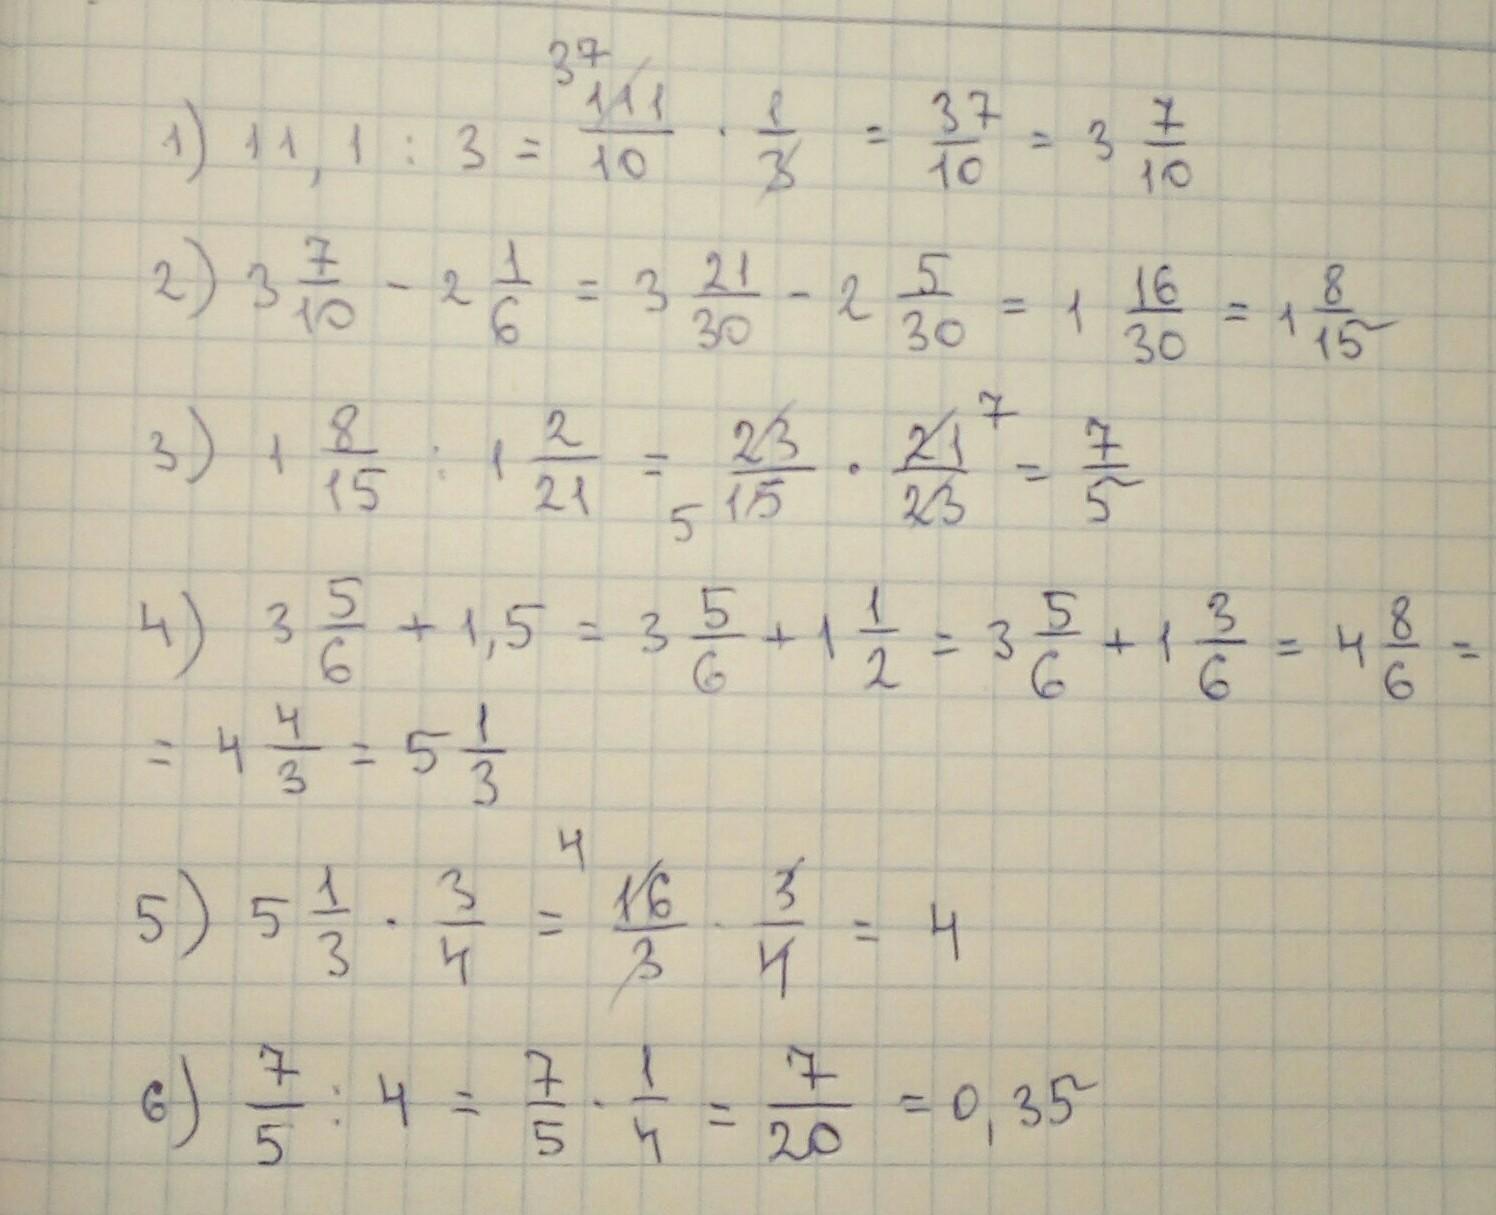 1) 11,1 : 3 = 37 111/10 · 1/3 = 37/10 = 3 7/10
2) 3 7/10 - 2 1/6 = 3 21/30 - 2 5/30 = 1 16/30 = 1 8/15
3) 1 8/15 : 1 2/21 = 23/15 5 · 21/23 7 = 7/5
4) 3 5/6 + 1,5 = 3 5/6 + 1 1/2 = 3 5/6 + 1 3/6 = 4 8/6 =
= 4 4/3 = 5 1/3
5) 5 1/3 · 3/4 = 4 16/3 · 3/4 = 4
6) 7/5 : 4 = 7/5 · 1/4 = 7/20 = 0,35